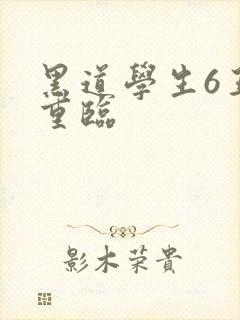 黑道學生6
重臨
影木荣貴